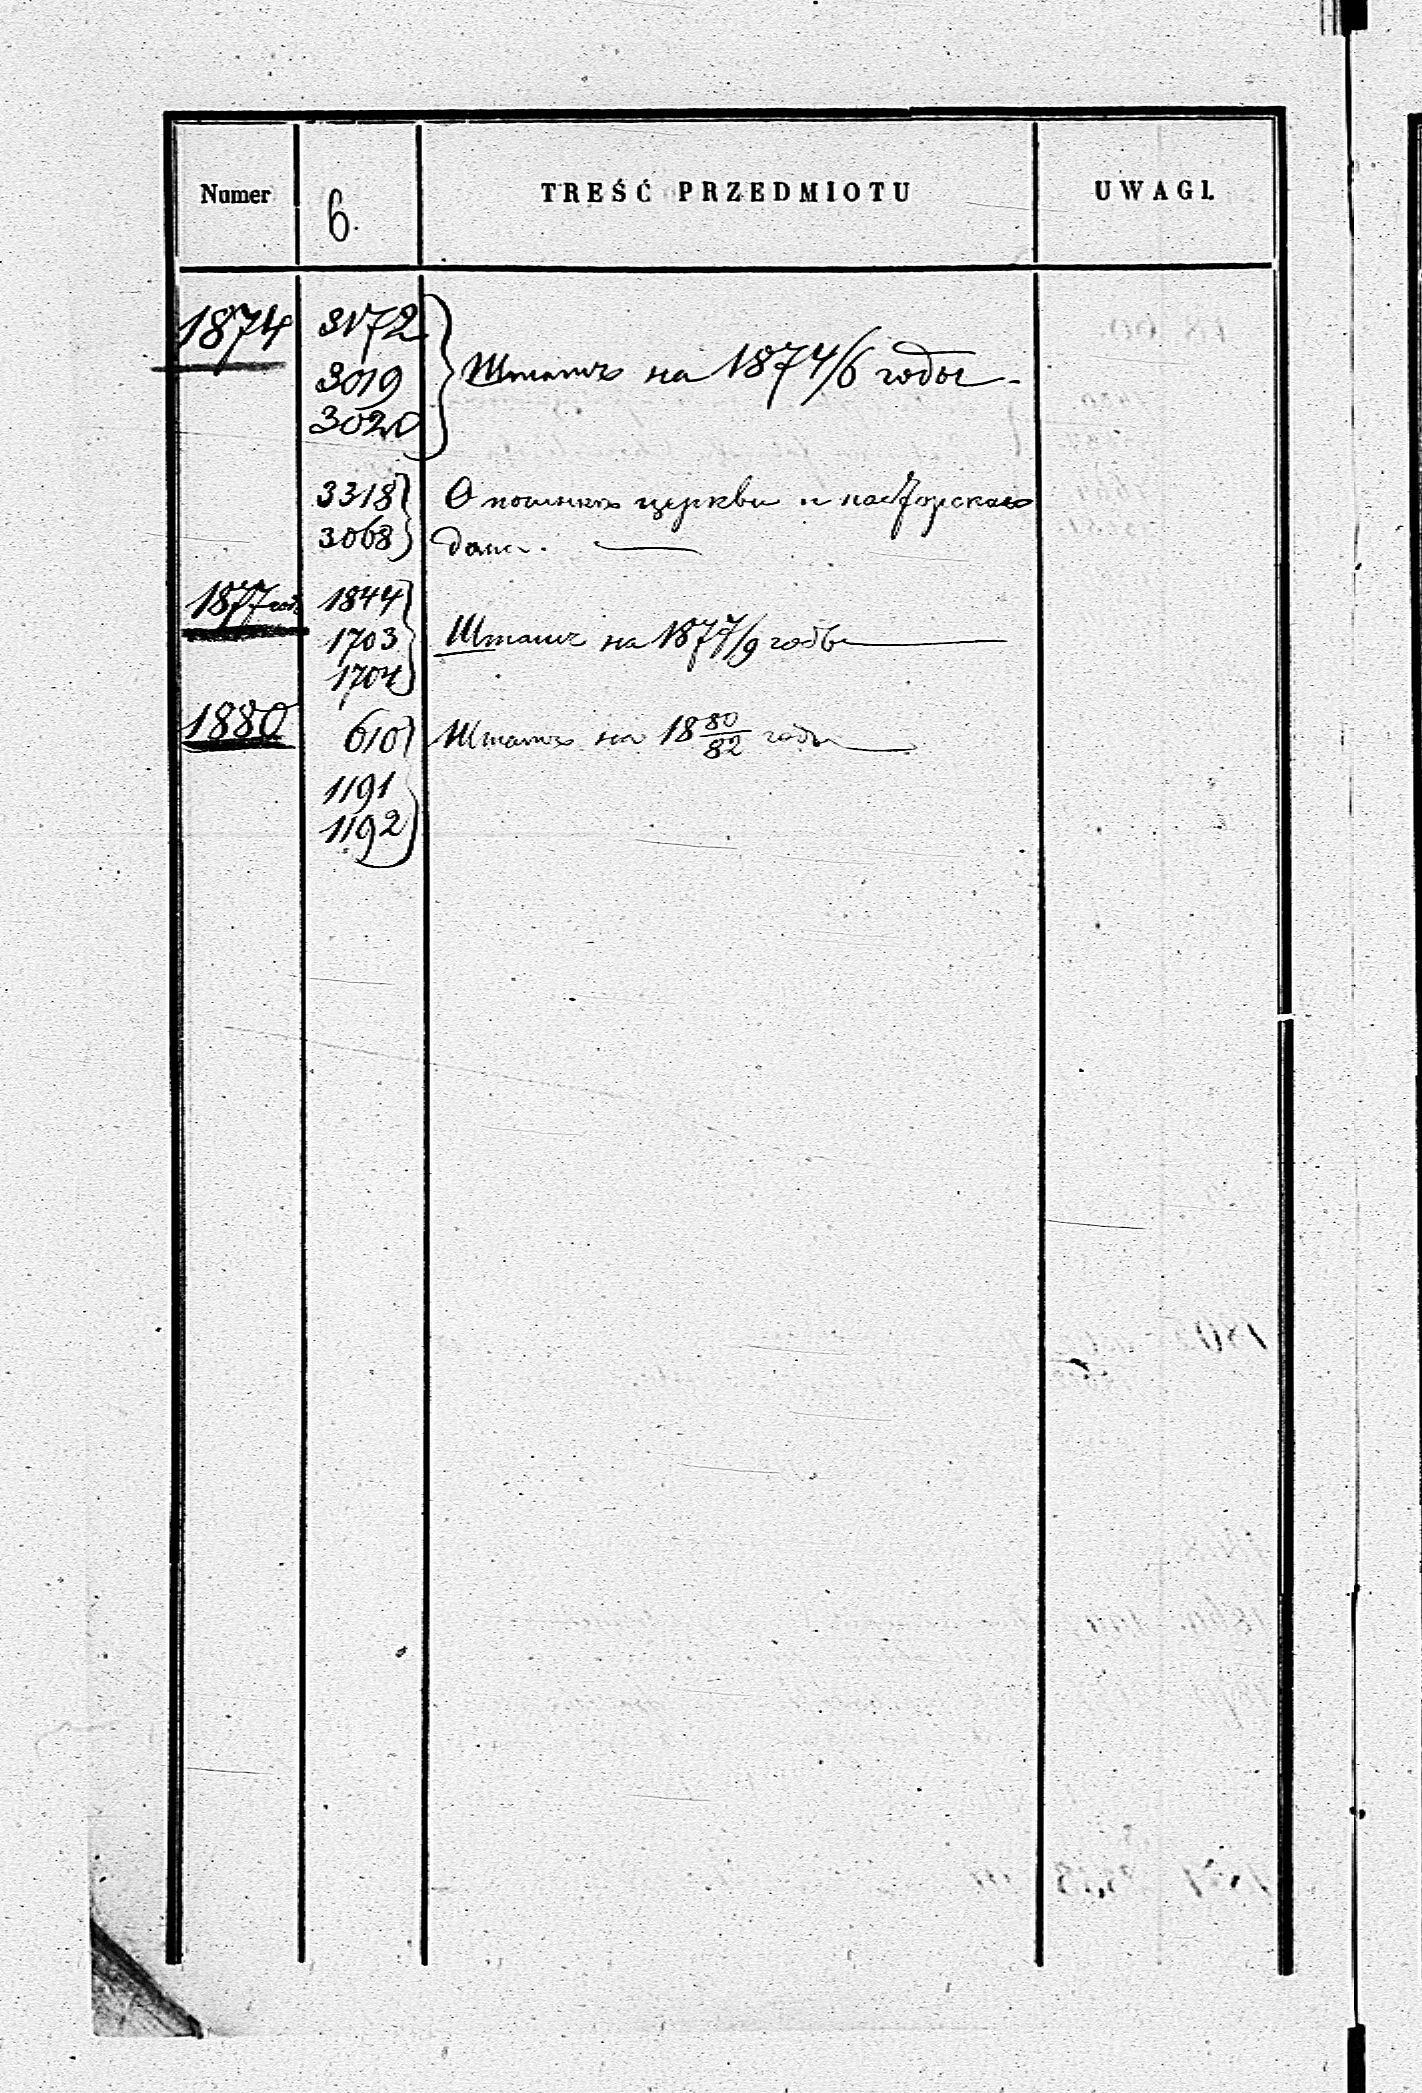 Numer 6. TREŚĆ PRZEDMIOTU UWAGI.
1874 3172
Штатъ на 1874/6 годы.
3019
3020
3318 О починкѣ церкви и пасторскаго
3068 дома.
1877 годъ 1844
1703 Штатъ на 1877/9 годы
1704
1880 610 Штатъ на 1880/82 годы
1191
1192